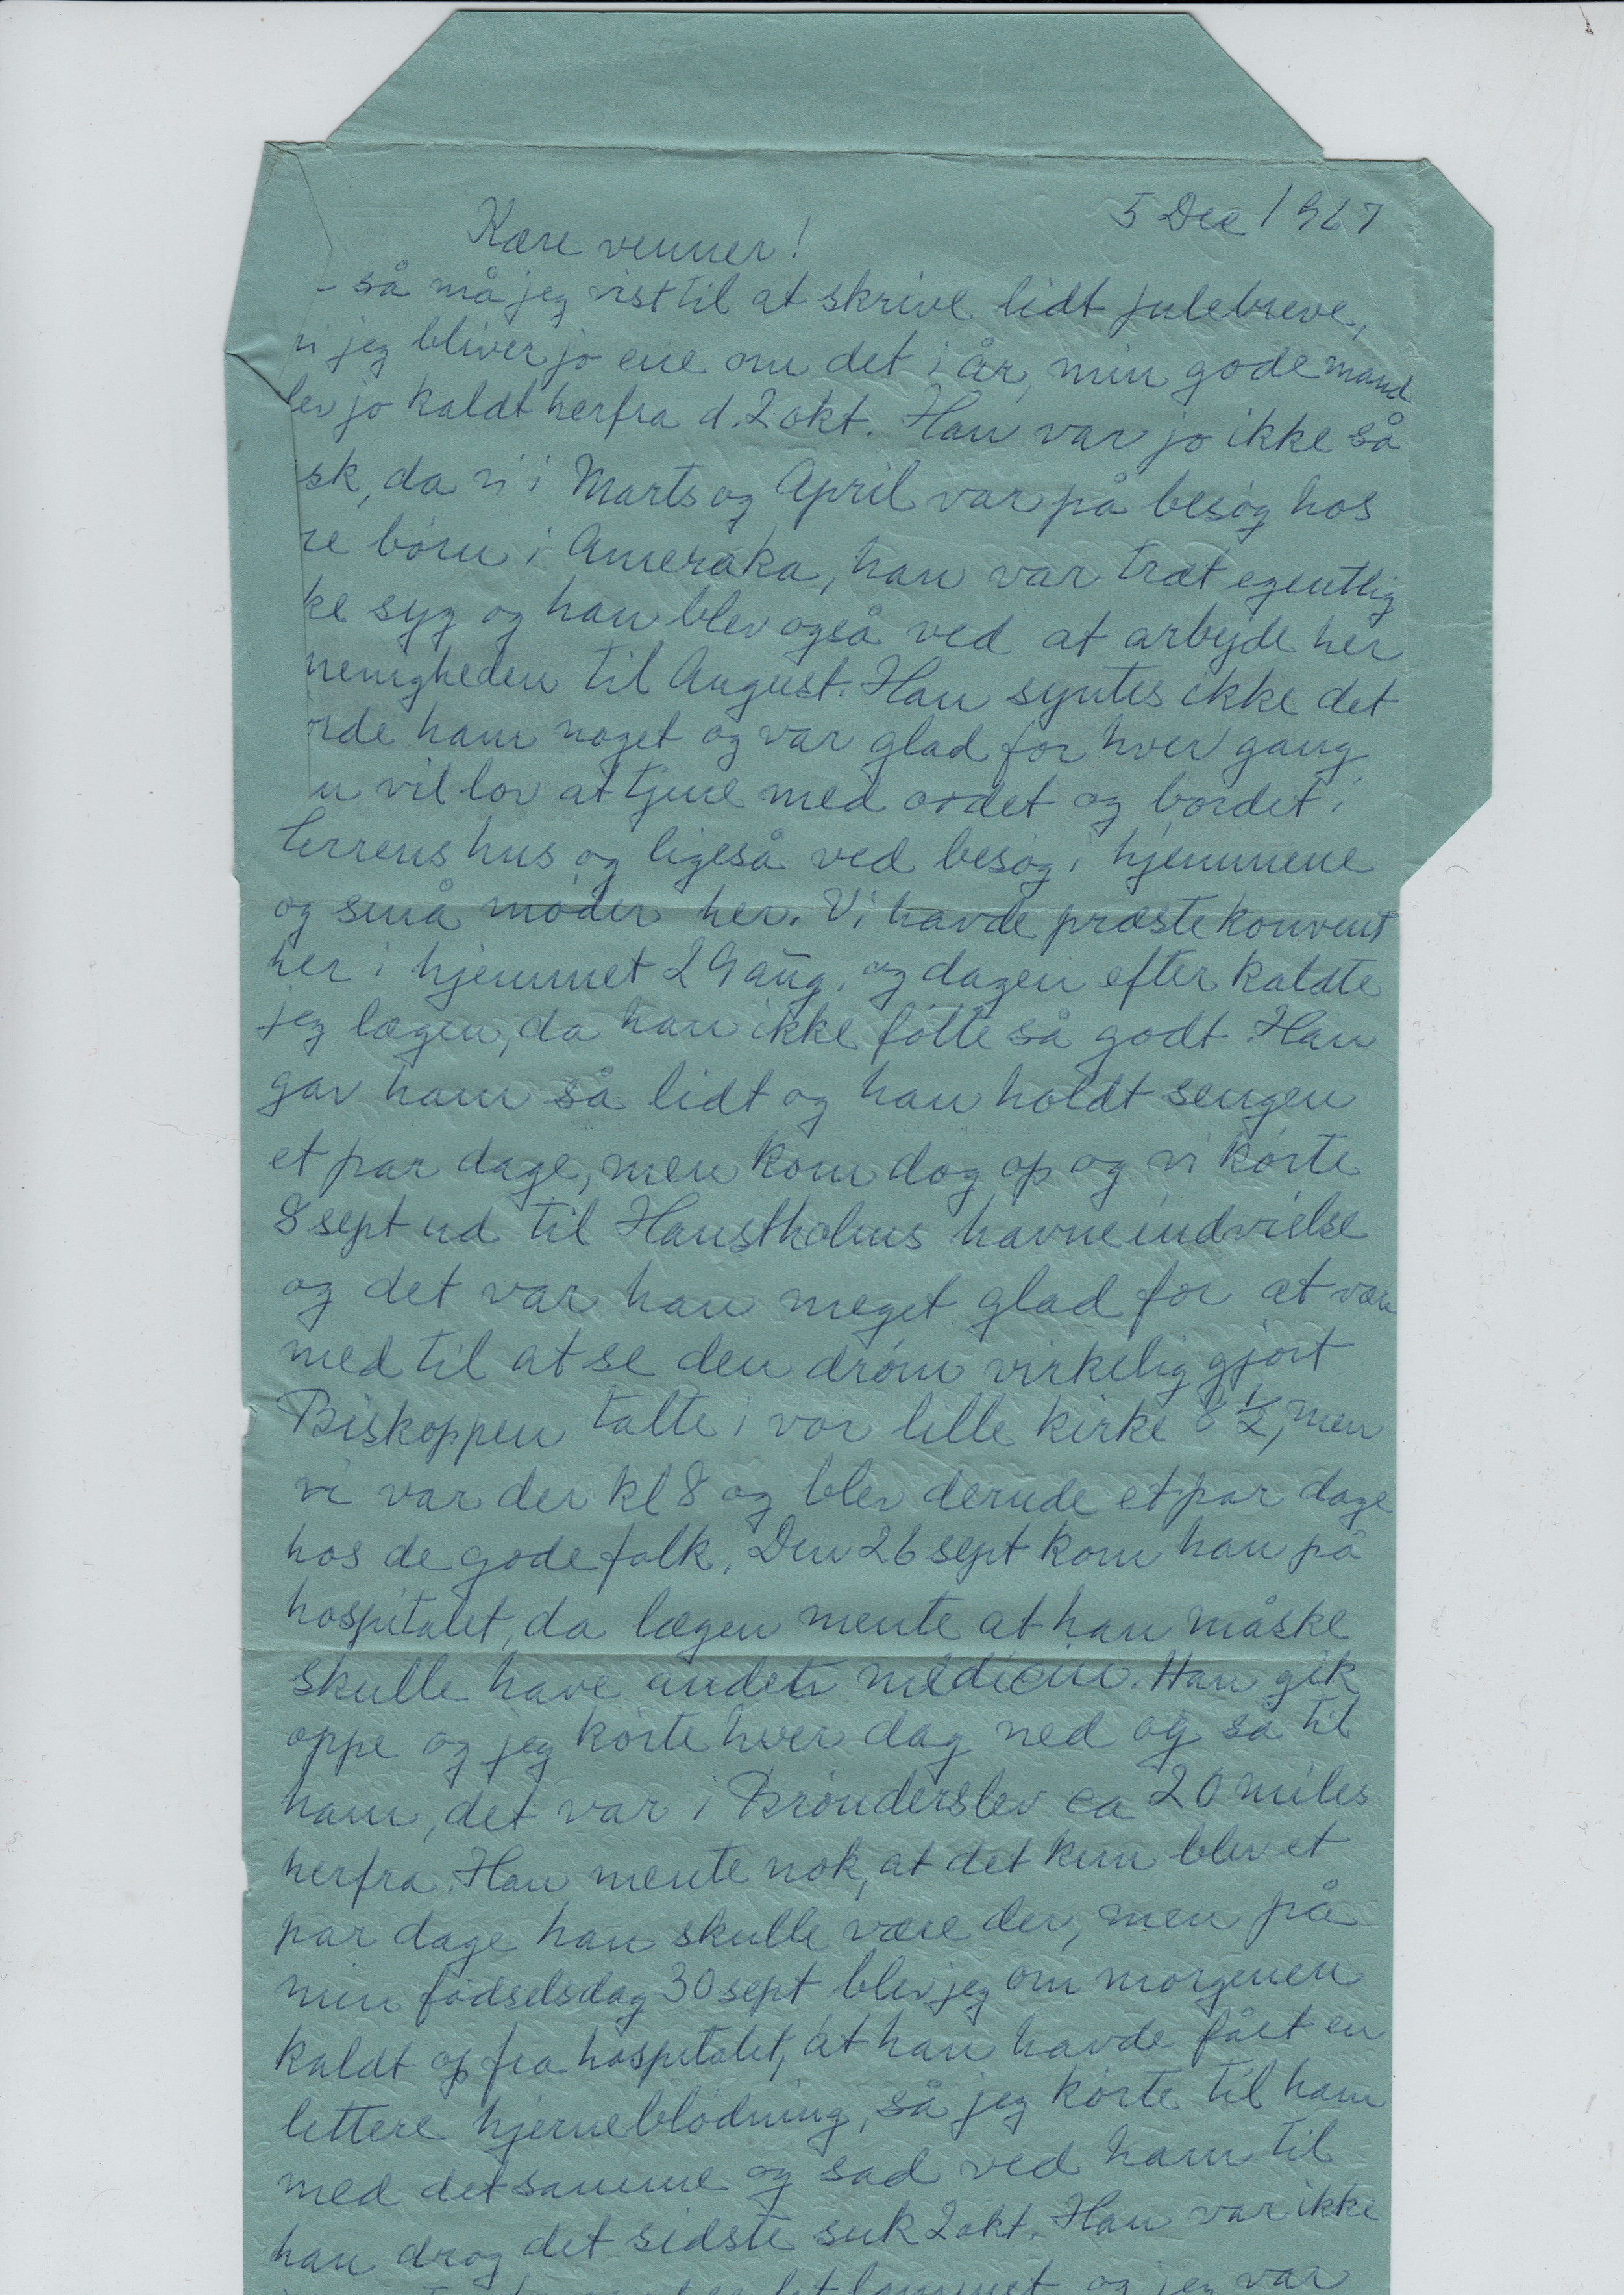 5 Dec 1967
Kære venner!
- så må jeg vist til at skrive lidt julebreve,
vi jeg bliver jo ene om det i år, min gode mand
lev jo kaldt herfra d. 2 okt. Han var jo ikke så
sk, da vi i Marts og April var på besøg hos
re børn i Ameraka, han var træt egentlig
ke syg og han blev også ved at arbejde her
menigheden til August. Han syntes ikke det
rde ham noget og var glad for hver gang
n vil lov at tjene med ordet og bordet i
herrens hus og ligeså ved besøg i hjemmene
og små møder her. Vi havde præstekonvent
her i hjemmet 29 aug. og dagen efter kaldte
jeg lægen, da han ikke følte så godt. Han
gav ham så lidt og han holdt sengen
et par dage, men kom dog op og vi kørte
8 sept ud til Hanstholms havneindvielse
og det var han meget glad for at være
med til at se den drøm virkelig gjort
Biskoppen talte i vor lille kirke 8 1/2, men
vi var der kl 8 og blev derude et par dage
hos de gode folk. Den 26 sept kom han på
hospitalet, da lægen mente at han måske
skulle have anden medicin. Han gik
oppe og jeg kørte hver dag ned og så til
ham, det var i Brønderslev ca 20 miles
herfra. Han mente nok, at det kun blev et
par dage han skulle være der, men på
min fødselsdag 30 sept blev jeg om morgenen
kaldt op fra hospitalet, at han havde fået en
lettere hjerneblødning, så jeg kørte til ham
med det samme og sad ved ham til
han drog det sidste suk 2 okt. Han var ikke
og jeg var